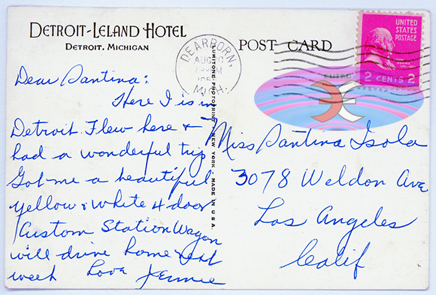 DETROIT-LELAND HOTEL
DETROIT, MICHIGAN
POST CARD
DEARBORN,
AUG
MICH.
UNITED STATES POSTAGE
2 CENTS 2
Dear Santina:
Here I is in
Detroit Flew here &
had a wonderful trip
Got me a beautiful
yellow & white 4 door
Custom Station Wagon
will drive home next
week Love Jennie
NEW YORK - MADE IN U.S.A.
Miss Santina Isola
3078 Weldon Ave
Los Angeles
Calif